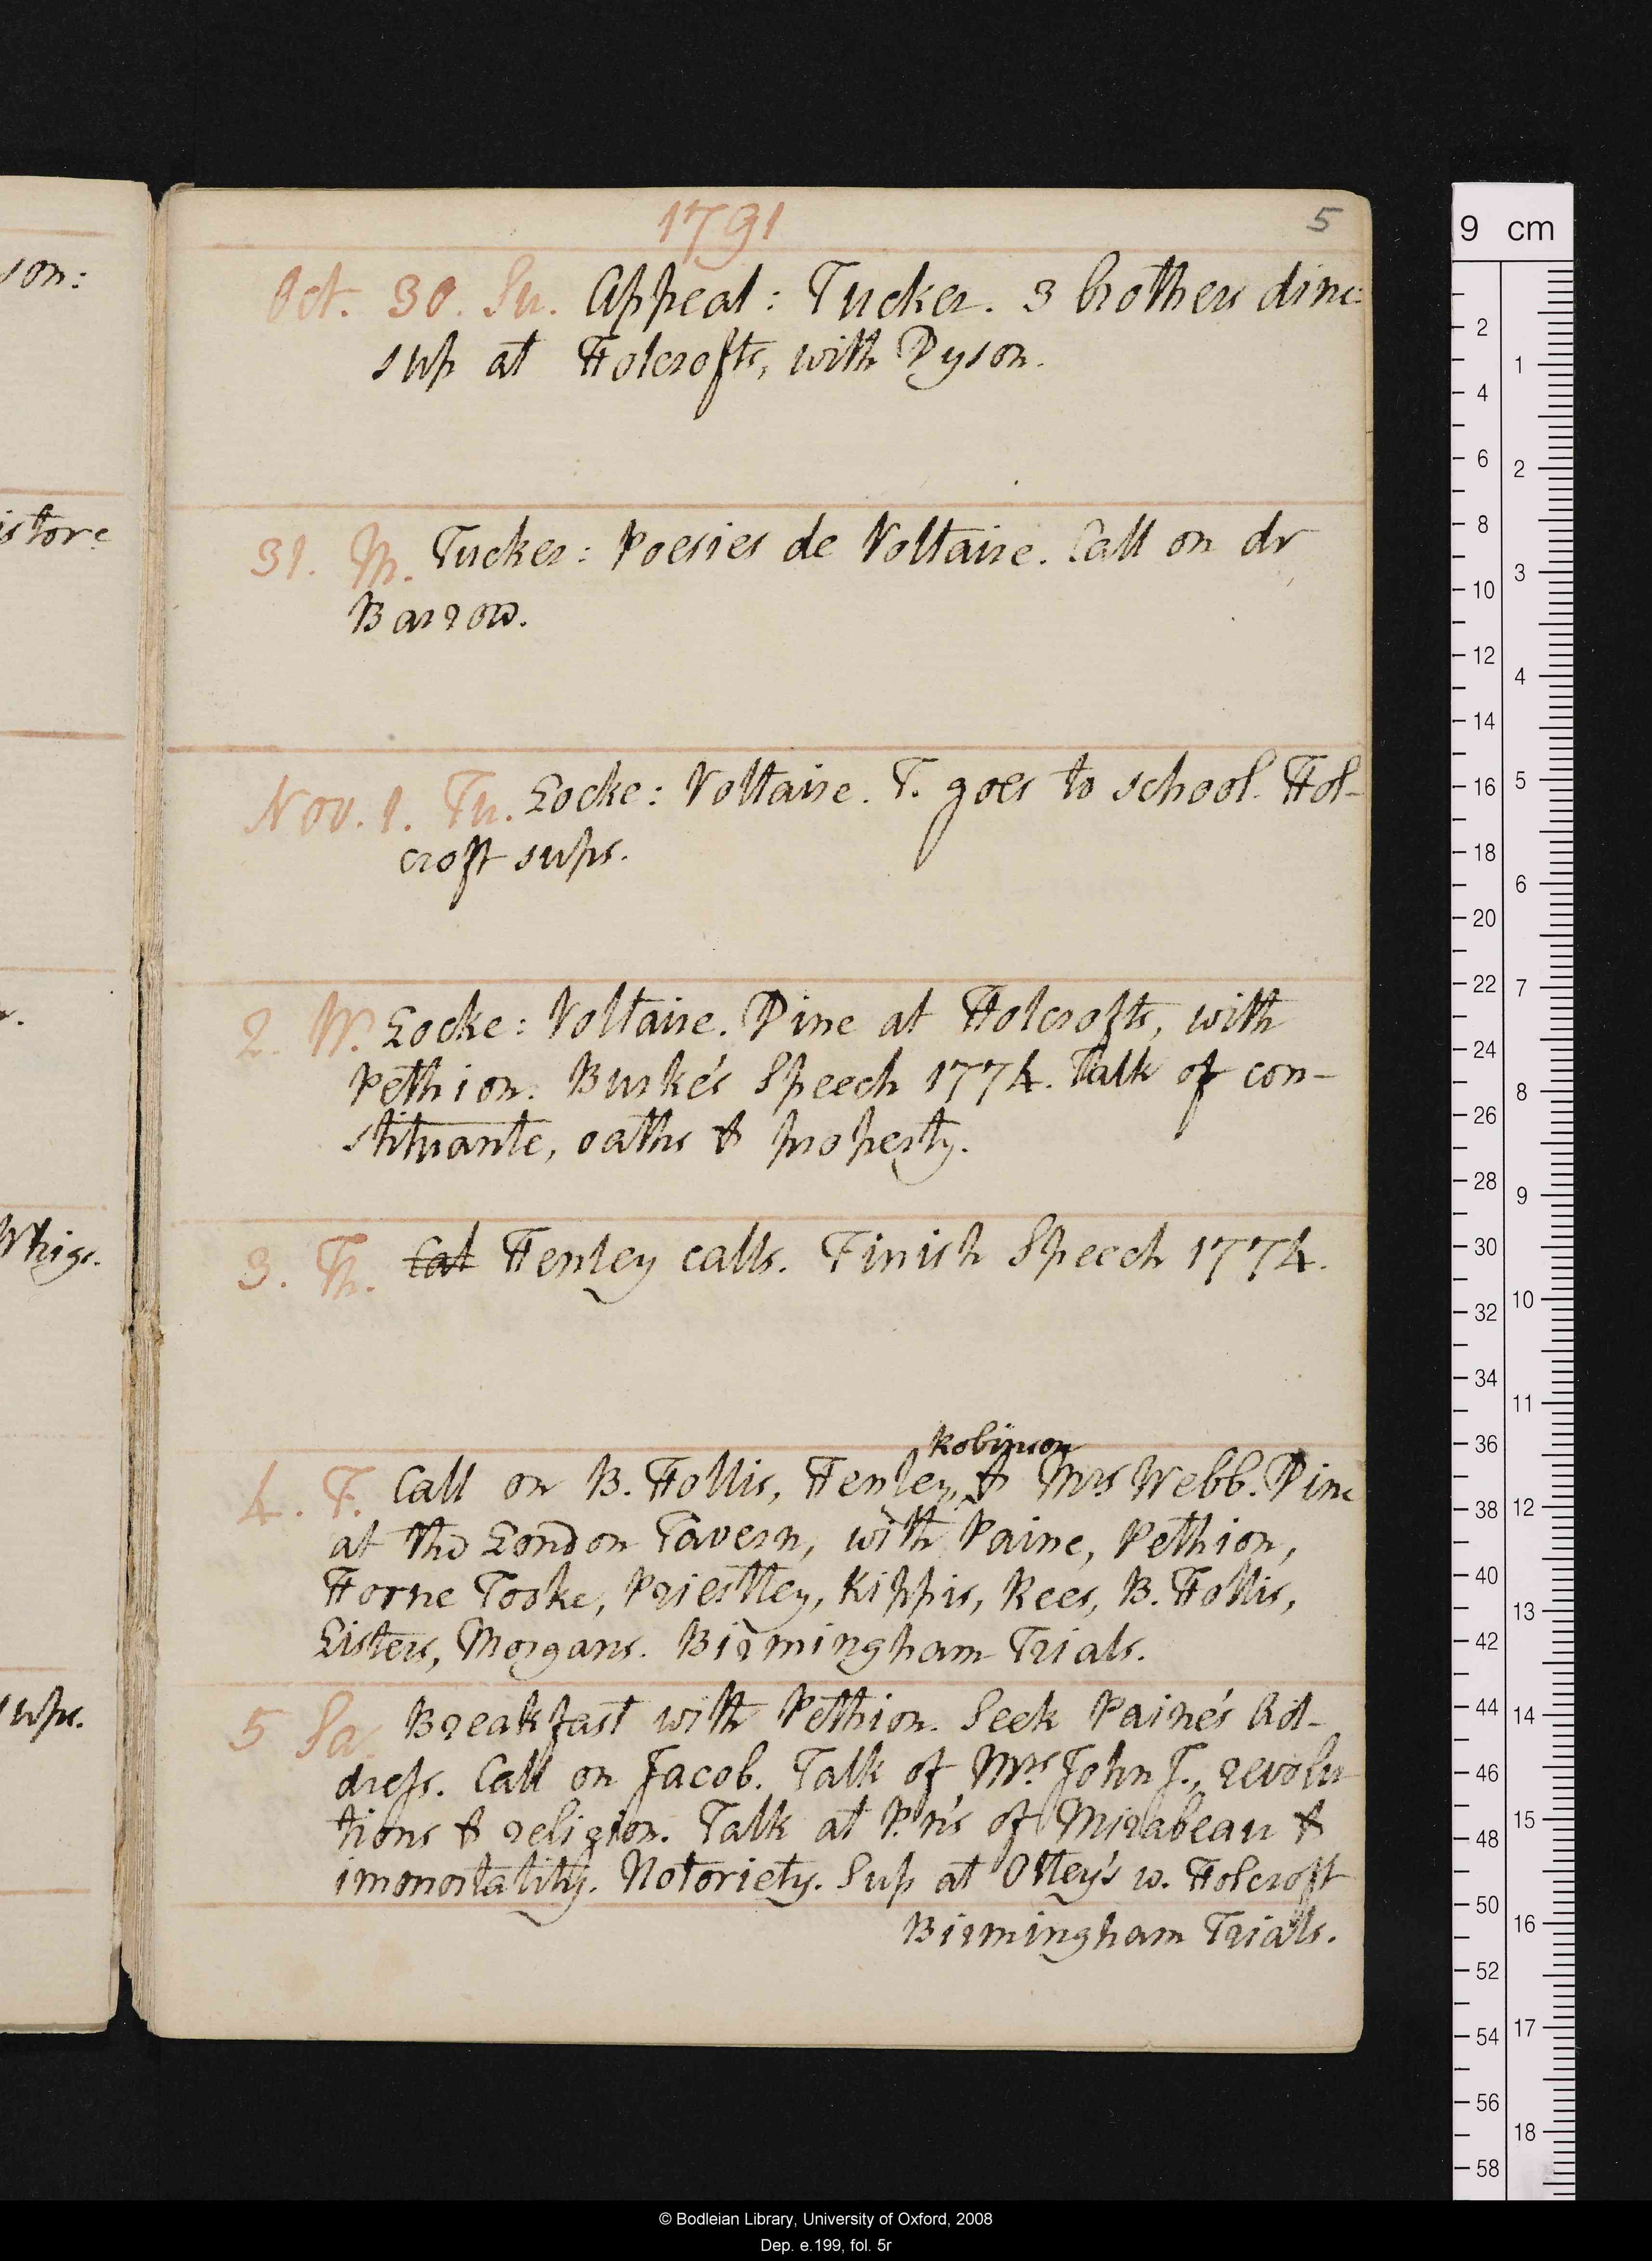 1791
5
Oct. 30. Su. Appeal: Tucker. 3 brothers dine:
sup at Holcrofts, with Dyson.
31. M. Tucker: Poesies de Voltaire. Call on dr
Barrow.
Nov. 1. Tu. Locke: Voltaire. T. goes to school. Hol-
croft sups.
2. W. Locke: Voltaire. Dine at Holcrofts, with
Pethion. Burke's Speech 1774. Talk of con-
stituante, oaths & property.
3. Th. Cal Henley calls. Finish Speech 1774.
Robinson
4. F. Call on B. Hollis, Henley, & Mrs Webb. Dine
at the London Tavern, with Paine, Pethion,
Horne Tooke, Priestley, Kippis, Rees, B. Hollis,
Listers, Morgans. Birmingham Trials.
5 Sa. Breakfast with Pethion. Seek Paine's Ad-
dress. Call on Jacob. Talk of Mrs John J., revolu
tions & religion. Talk at P.n's of Mirabeau &
immortality. Notoriety. Sup at Ottey's w. Holcroft
Birmingham Trials.
son:
istore
r.
Whigs.
sups.
9 cm
2
4
6
8
10
12
14
16
18
20
22
24
26
28
30
32
34
36
38
40
42
44
46
48
50
52
54
56
58
1
2
3
4
5
6
7
8
9
10
11
12
13
14
15
16
17
18
© Bodleian Library, University of Oxford, 2008
Dep. e.199, fol. 5r